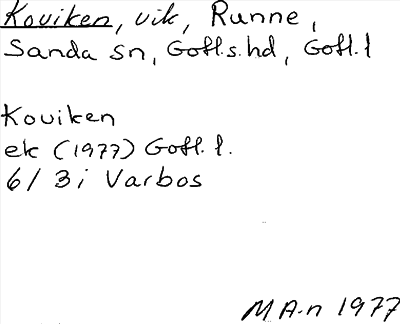 Koviken, vik, Runne,
Sanda sn, Gotl.s.hd, Gotl.l
Koviken
ek (1977) Gotl. l.
6/ 3 i Varbos
M A-n 1977